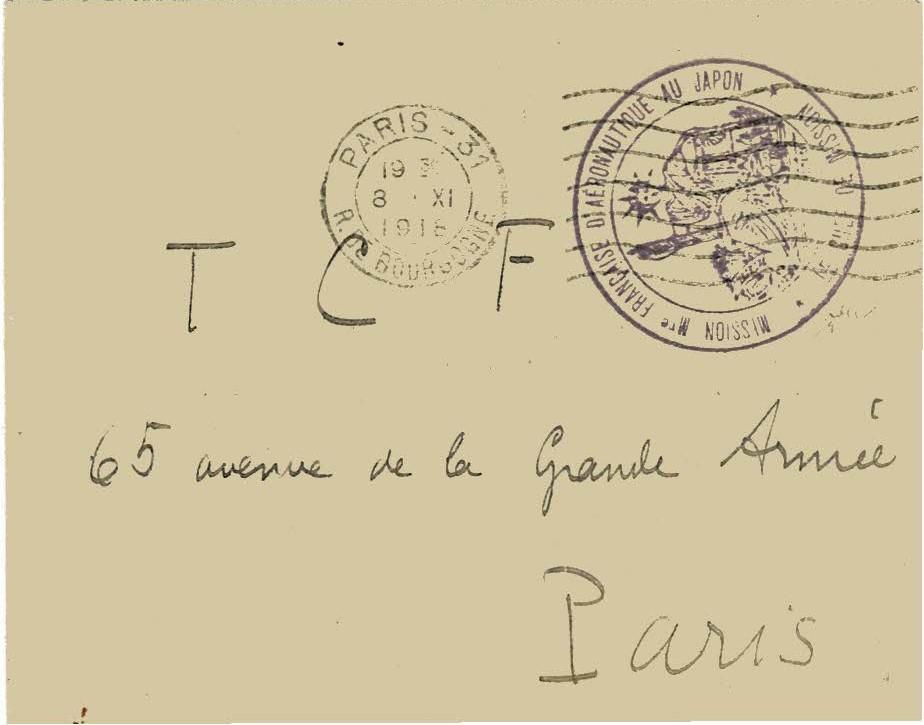 PARIS - 31
19
8 XI
1918
R. DE BOURGOGNE
MISSION Mre FRANÇAISE D'AÉRONAUTIQUE AU JAPON
LE CHEF DE MISSION
T C F
65 avenue de la Grande Armée
Paris